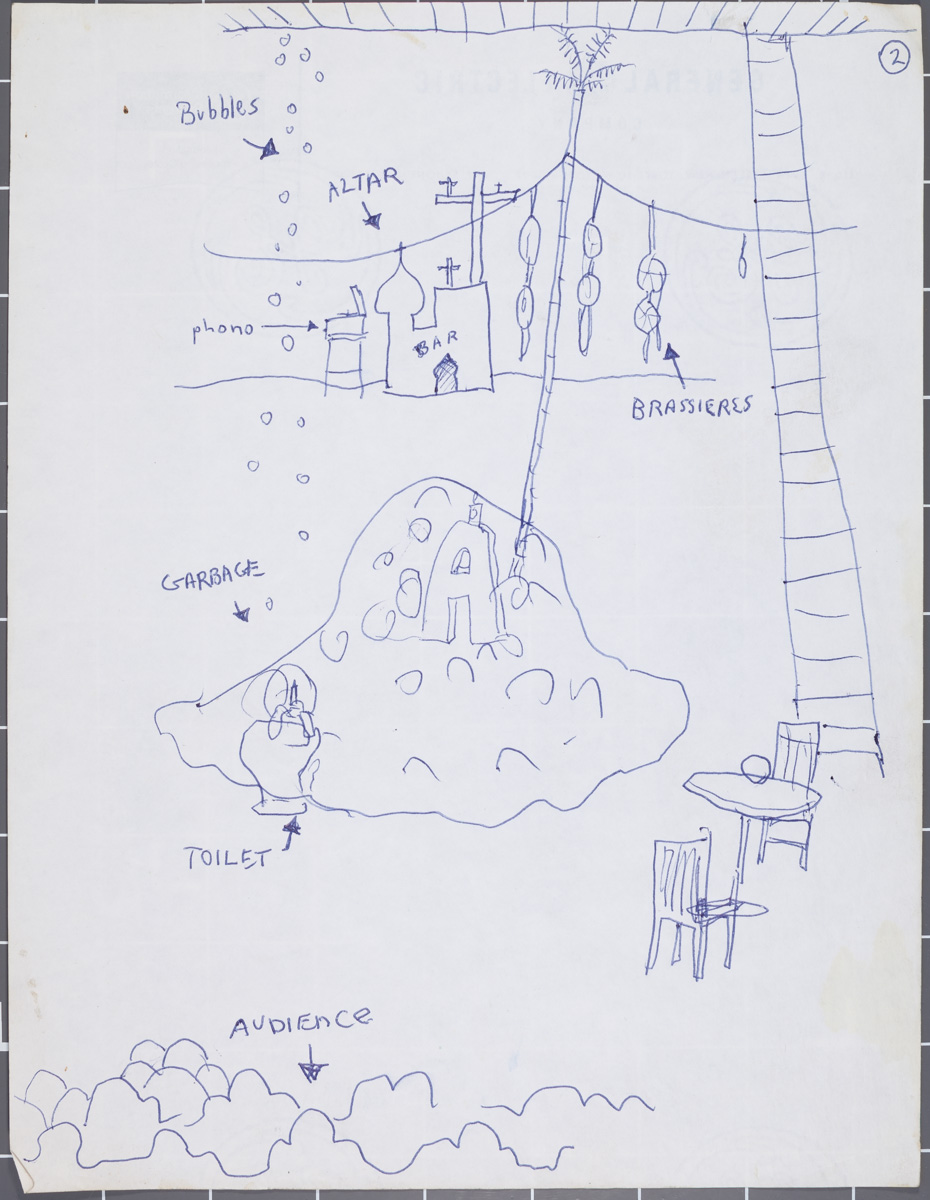 2
Bubbles
ALTAR
phono
BAR
BRASSIERES
GARBAGE
TOILET
AUDIENCE